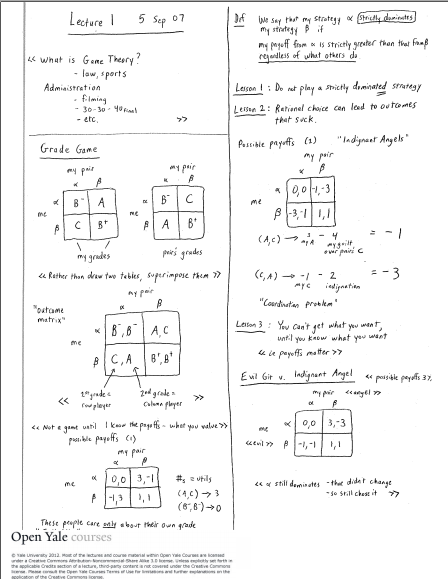 Lecture 1 5 Sep 07
<< What is Game Theory?
- law, sports
Administration
- filming
- 30-30-40 final
- etc. >>
Grade Game
my pair
α β
me
α B⁻ A
β C B⁺
my grades
my pair
α β
me
α B⁻ C
β A B⁺
pair's grades
<< Rather than draw two tables, superimpose them >>
my pair
α β
"Outcome
matrix"
me
α B⁻, B⁻ A, C
β C, A B⁺, B⁺
<< 1st grade = row player
2nd grade = column player >>
<< Not a game until I know the payoffs - what you value >>
possible payoffs (1)
my pair
α β
me
α 0,0 3,-1
β -1,3 1,1
#s = utils
(A,C) → 3
(B⁻,B⁻) → 0
These people care only about their own grade
Def We say that my strategy α strictly dominates
my strategy β if
my payoff from α is strictly greater than that from β
regardless of what others do
Lesson 1: Do not play a strictly dominated strategy
Lesson 2: Rational choice can lead to outcomes
that suck.
Possible payoffs (2) "Indignant Angels"
my pair
α β
me
α 0,0 -1,-3
β -3,-1 1,1
(A,C) → 3 - 4 = -1
my A my guilt over pair's C
(C,A) → -1 - 2 = -3
my C indignation
"Coordination problem"
Lesson 3: You can't get what you want,
until you know what you want
<< ie payoffs matter >>
Evil Git v. Indignant Angel << possible payoffs 3 >>
my pair << angel >>
α β
me
<< evil >>
α 0,0 3,-3
β -1,-1 1,1
<< α still dominates - that didn't change
- so still chose it >>
Open Yale courses
© Yale University 2012. Most of the lectures and course material within Open Yale Courses are licensed
under a Creative Commons Attribution-Noncommercial-Share Alike 3.0 license. Unless explicitly set forth in
the applicable Credits section of a lecture, third-party content is not covered under the Creative Commons
license. Please consult the Open Yale Courses Terms of Use for limitations and further explanations on the
application of the Creative Commons license.